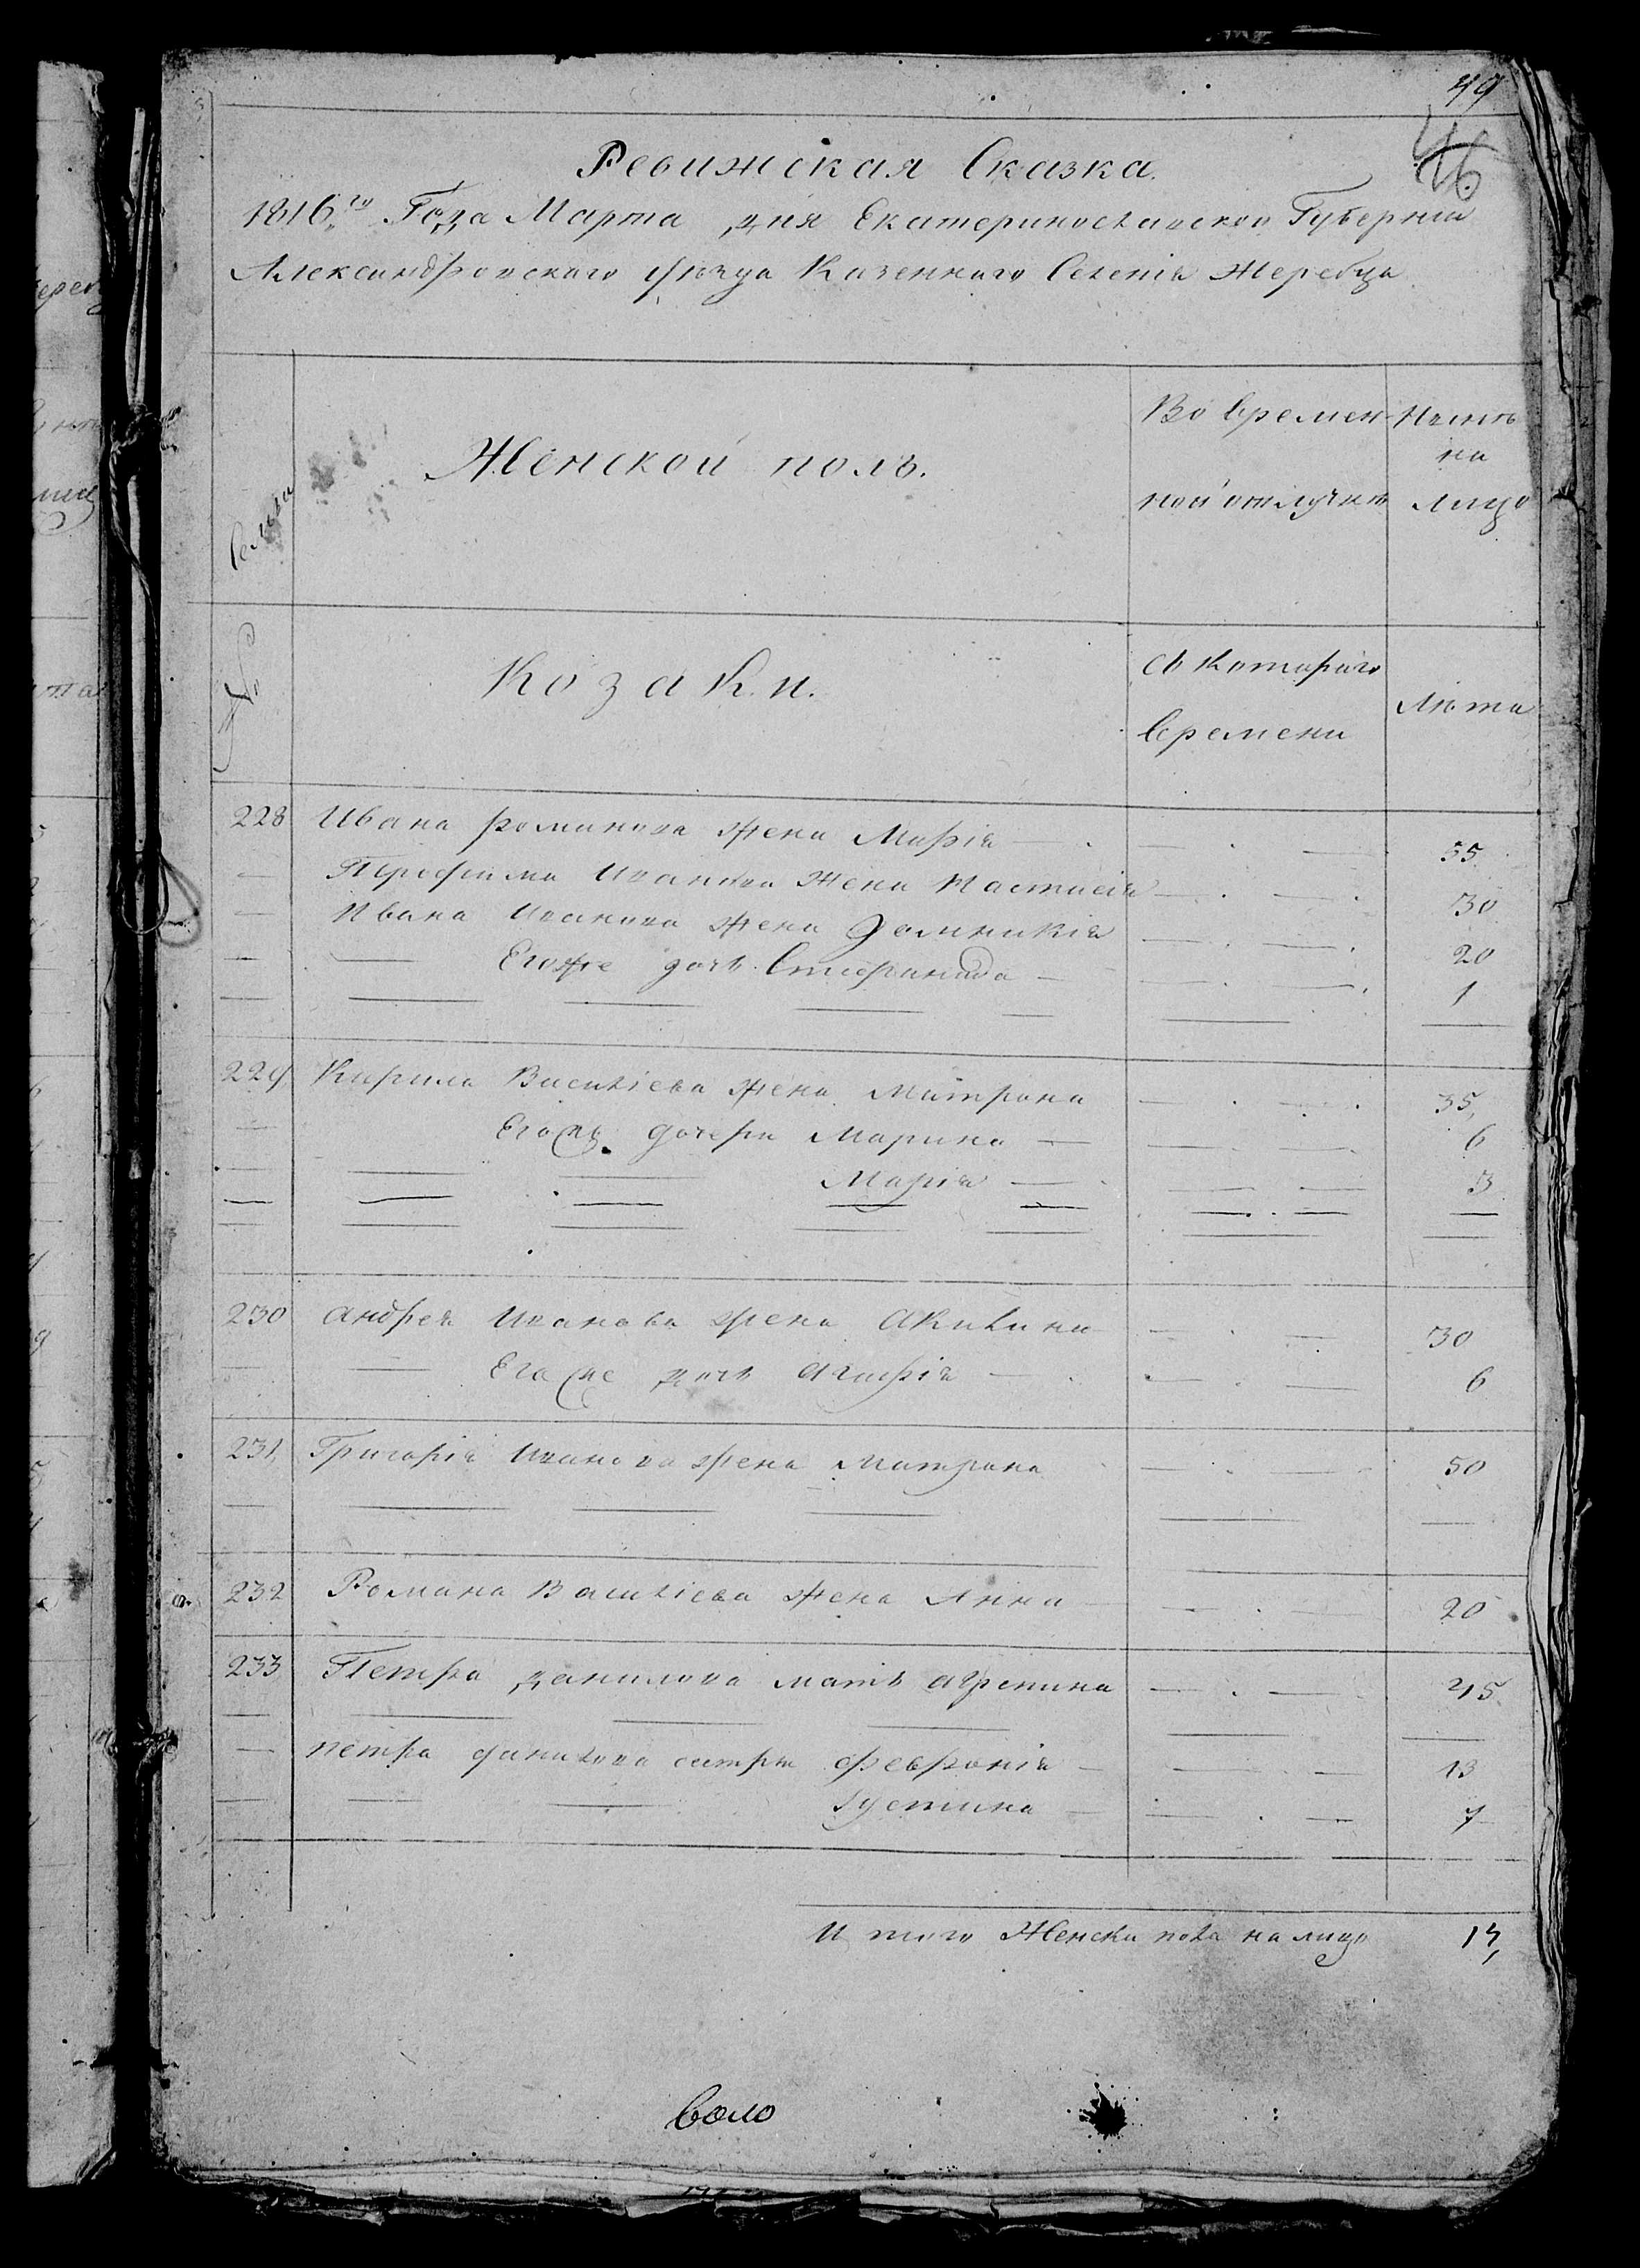 49
46
Ревижская Сказка.
1816го Года Марта дня Екатеринославской Губернии
Александровского уѣзда Казенного Селенія Жеребца
Семьи Женской полъ. Во времен- Нынѣ
на
ной отлучкѣ лицо
№ Козаки. съ которого Лѣта
времени
228 Ивана Романова жена Марія — 55
— Терофима Иванова жена Настасія — 30
— Ивана Иванова жена Домникія — 20
— Егоже дочь Степанида — 1
229 Кирила Василіева жена Матрона — 35,
— Егожъ дочери Марина — 6
— Марія — 3
230 Андрея Иванова жена Акилина — 30
— Егоже дочь Агафія — 6
231, Григорія Иванова жена Матрона — 50
232 Романа Василіева жена Анна — 20
233 Петра Данилова мать Агрепина — 45
— петра данилова сестры Февронія — 13
— Іустина — 7
И того Женска пола на лицо 14,
воло